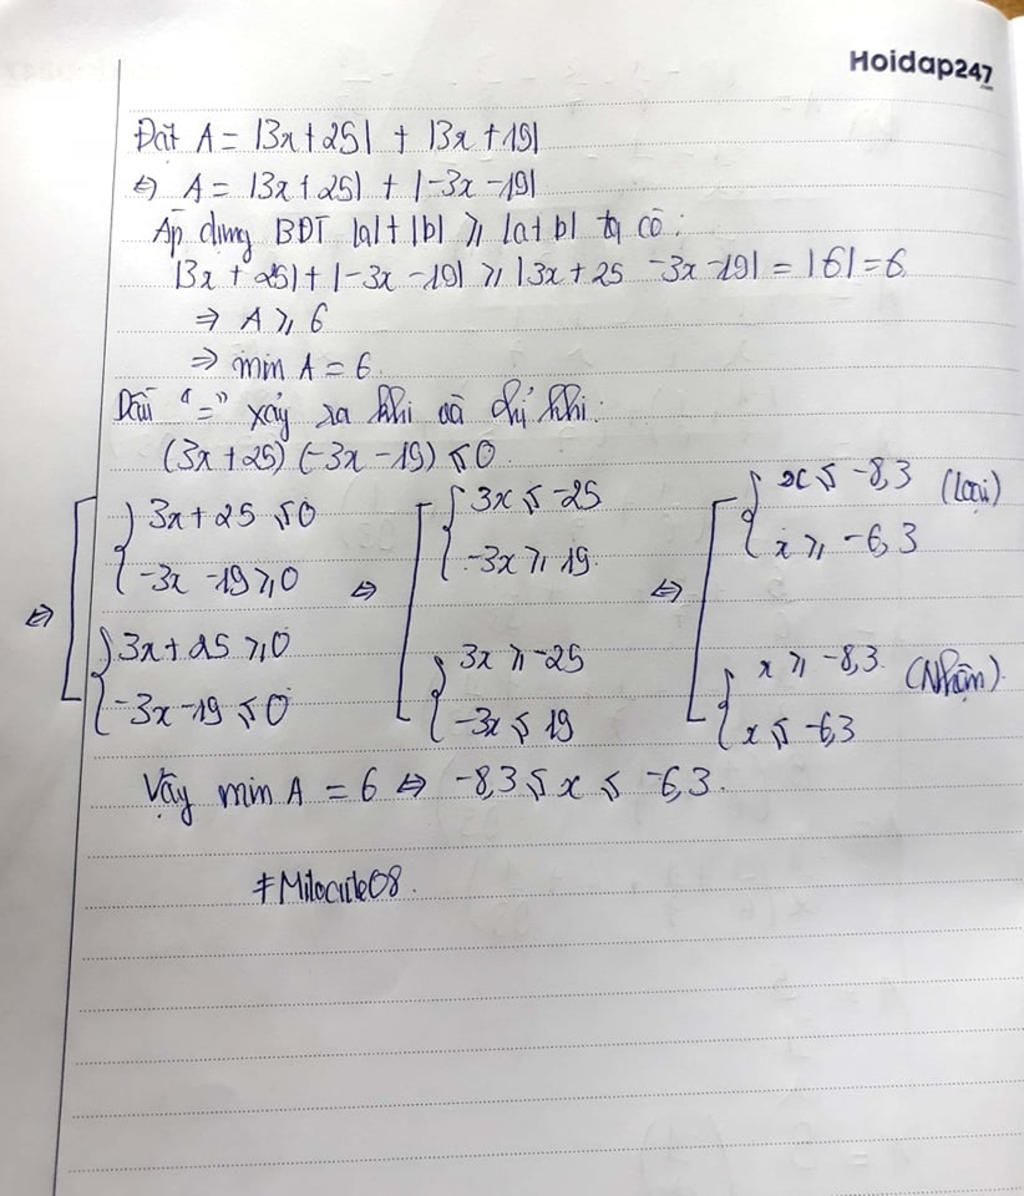 Hoidap247
.com
Đặt A = |3x+25| + |3x+19|
⇔ A = |3x+25| + |-3x-19|
Áp dụng BĐT |a|+|b| ⩾ |a+b| ta có:
|3x+25|+|-3x-19| ⩾ |3x+25 -3x-19| = |6| = 6
⇒ A ⩾ 6
⇒ min A = 6.
Dấu "=" xảy ra khi và chỉ khi:
(3x+25)(-3x-19) ⩽ 0.
3x+25 ⩽ 0 3x ⩽ -25 x ⩽ -8,3 (Loại)
-3x-19 ⩾ 0 -3x ⩾ 19. x ⩾ -6,3
⇔ ⇔ ⇔
3x+25 ⩾ 0 3x ⩾ -25 x ⩾ -8,3. (Nhận).
-3x-19 ⩽ 0 -3x ⩽ 19 x ⩽ -6,3
Vậy min A = 6 ⇔ -8,3 ⩽ x ⩽ -6,3.
#Milocute08.